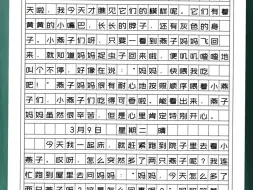 天啦，我今天才瞧见它们的模样呢，它们有着
黄黄的小嘴巴，长长的脖子，还有灰色的身
子。小燕子们呀，只要一看到燕子妈妈飞回
来，就知道妈妈捉虫子回来啦，便叽叽喳喳地
叫个不停，好像在说：“妈妈，妈妈，快喂我吃
吧！”燕子妈妈很有耐心地按照顺序喂着小燕
子们，小燕子们吃得可香啦，能看出来，燕子
妈妈虽然很辛苦，但是心里肯定特别开心。
3月9日 星期二 晴
今天我一起床，就赶紧跑到院子里去看小
燕子，哎呀，怎么突然多了两只燕子呢？我连
忙跑到屋里去问妈妈：“妈妈，妈妈，怎么多了